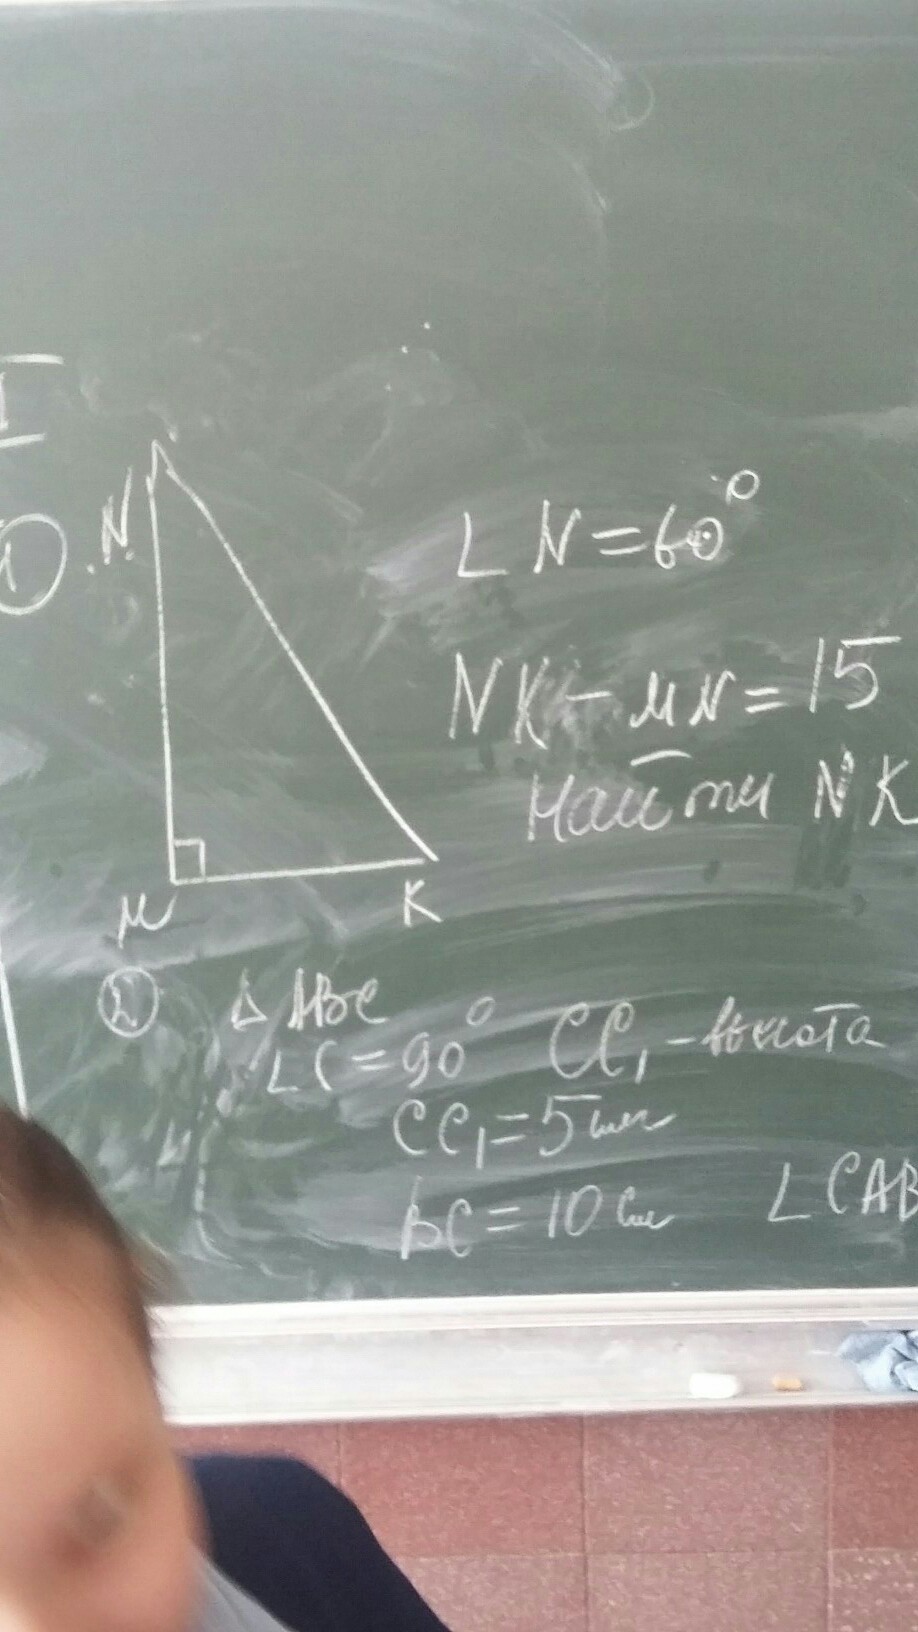 I
① N
∠ N = 60°
NK - MN = 15
Найти NK
M K
② △ ABC
∠C = 90° CC₁ - высота
CC₁ = 5 см
BC = 10 см ∠ CAB